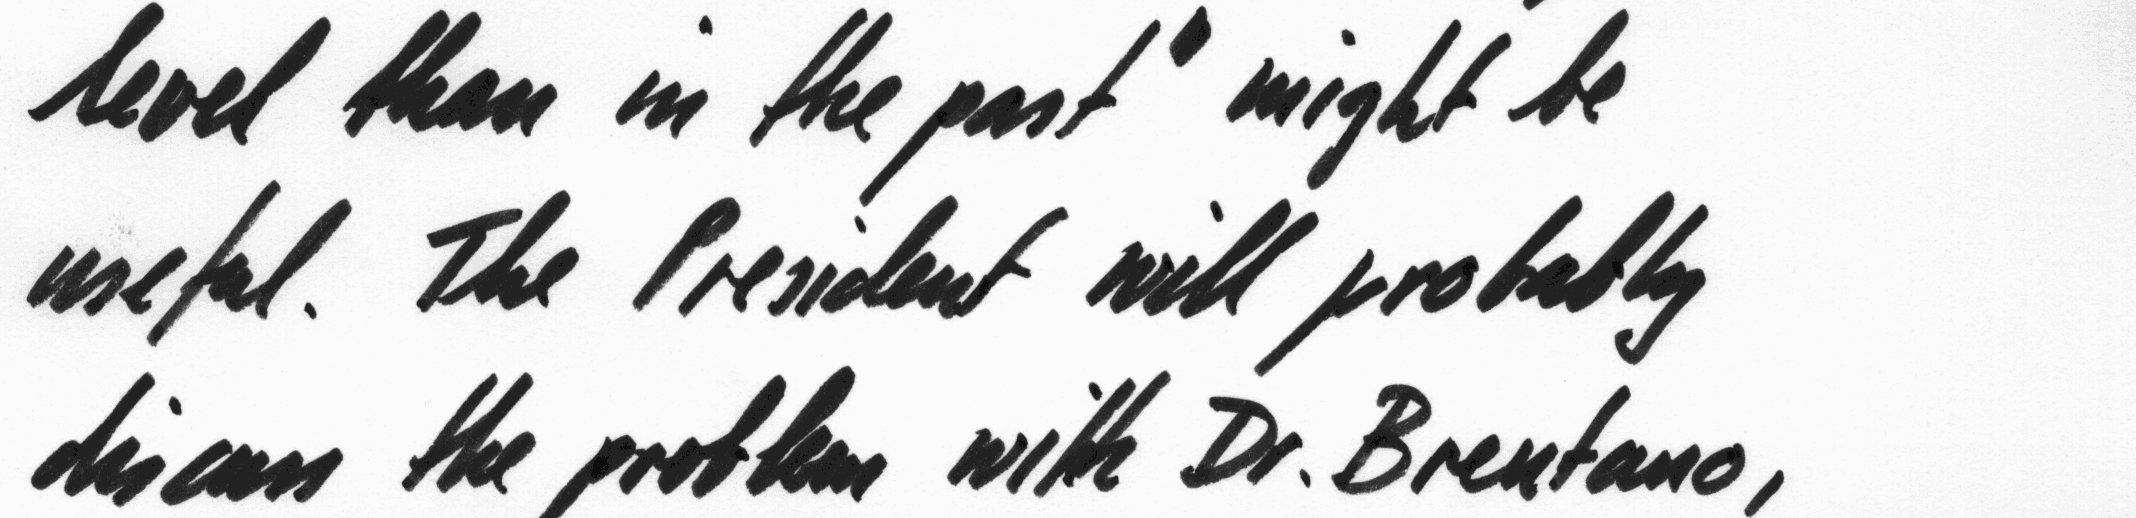 level than in the past" might be
useful. The President will probably
discuss the problem with Dr. Brentano,